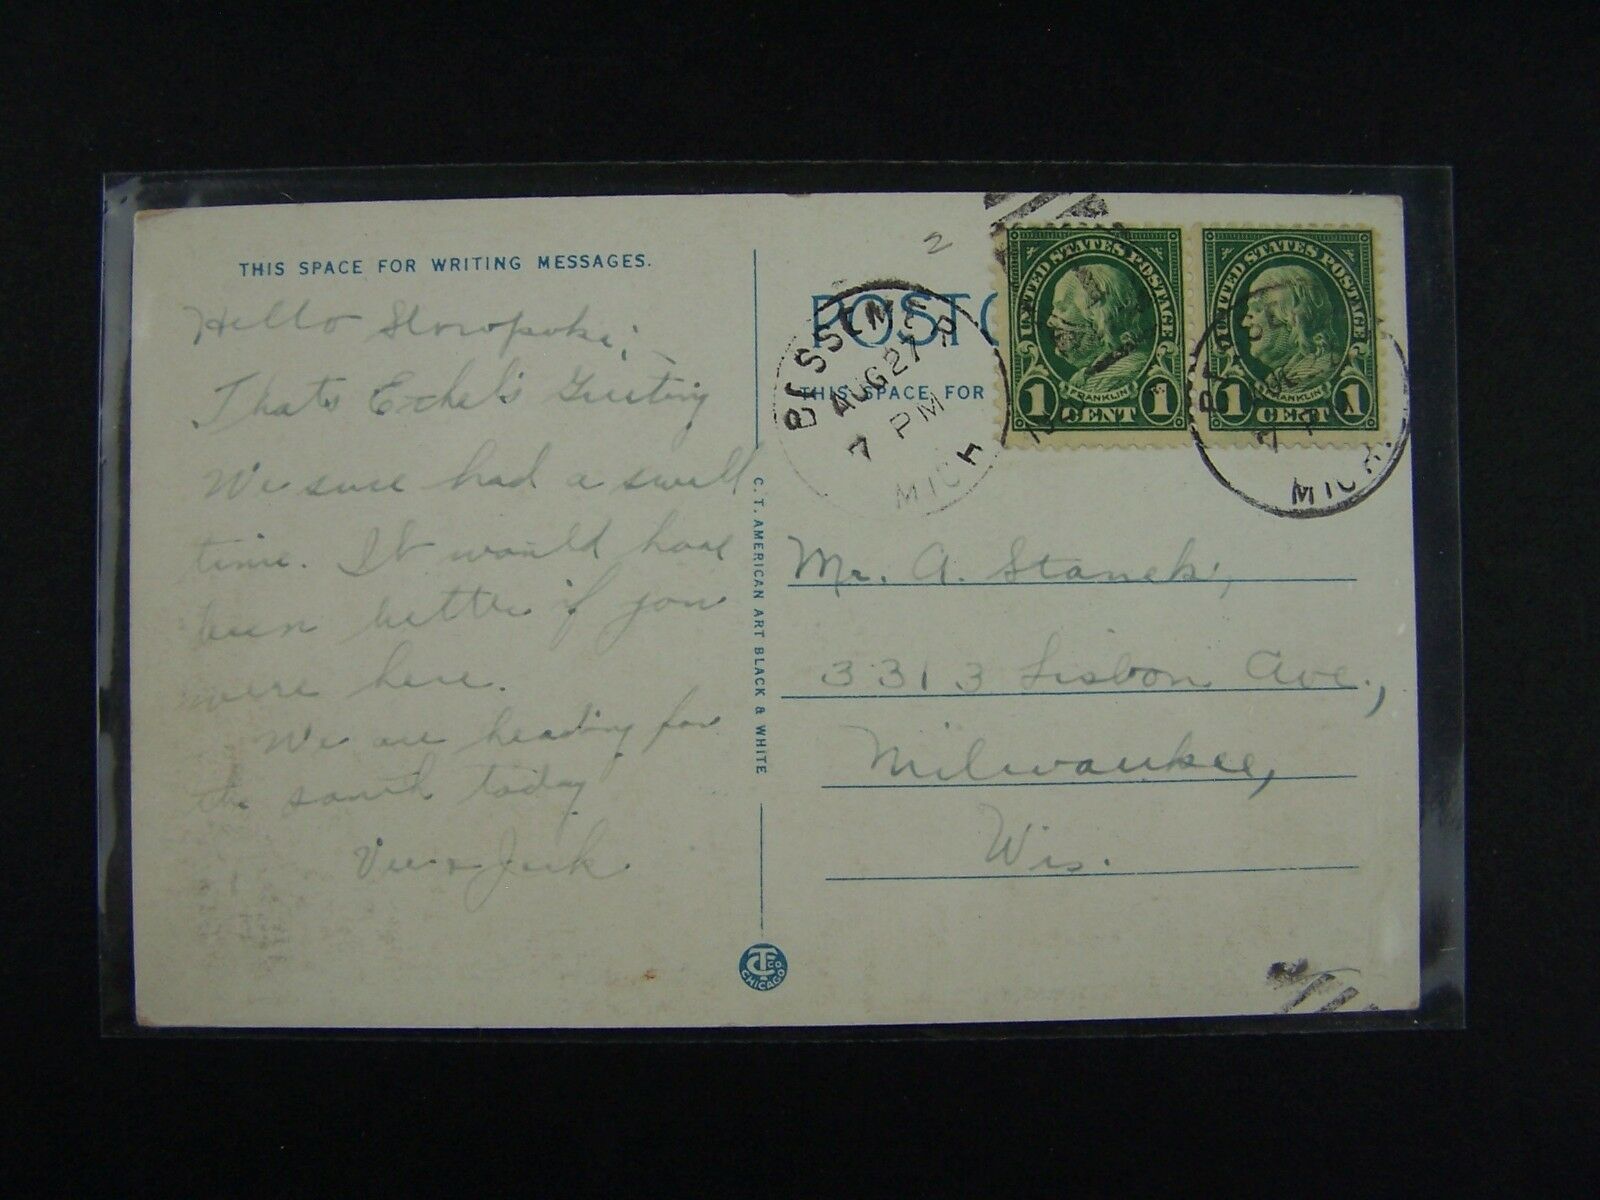 THIS SPACE FOR WRITING MESSAGES.
Hello Slowpoke;
That's Ethel's Greeting
We sure had a swell
time. It would have
been better if you
were here.
We are heading for
the south today
Jack
C. T. AMERICAN ART BLACK & WHITE
CTCo
CHICAGO
2
POSTC
THIS SPACE FOR
BESSEMER
AUG 27
7 PM
MICH
UNITED STATES POSTAGE
FRANKLIN
1 CENT 1
UNITED STATES POSTAGE
FRANKLIN
1 CENT 1
7 P
MICH.
Mr. A. Stanek,
3313 Lisbon Ave.,
Milwaukee,
Wis.